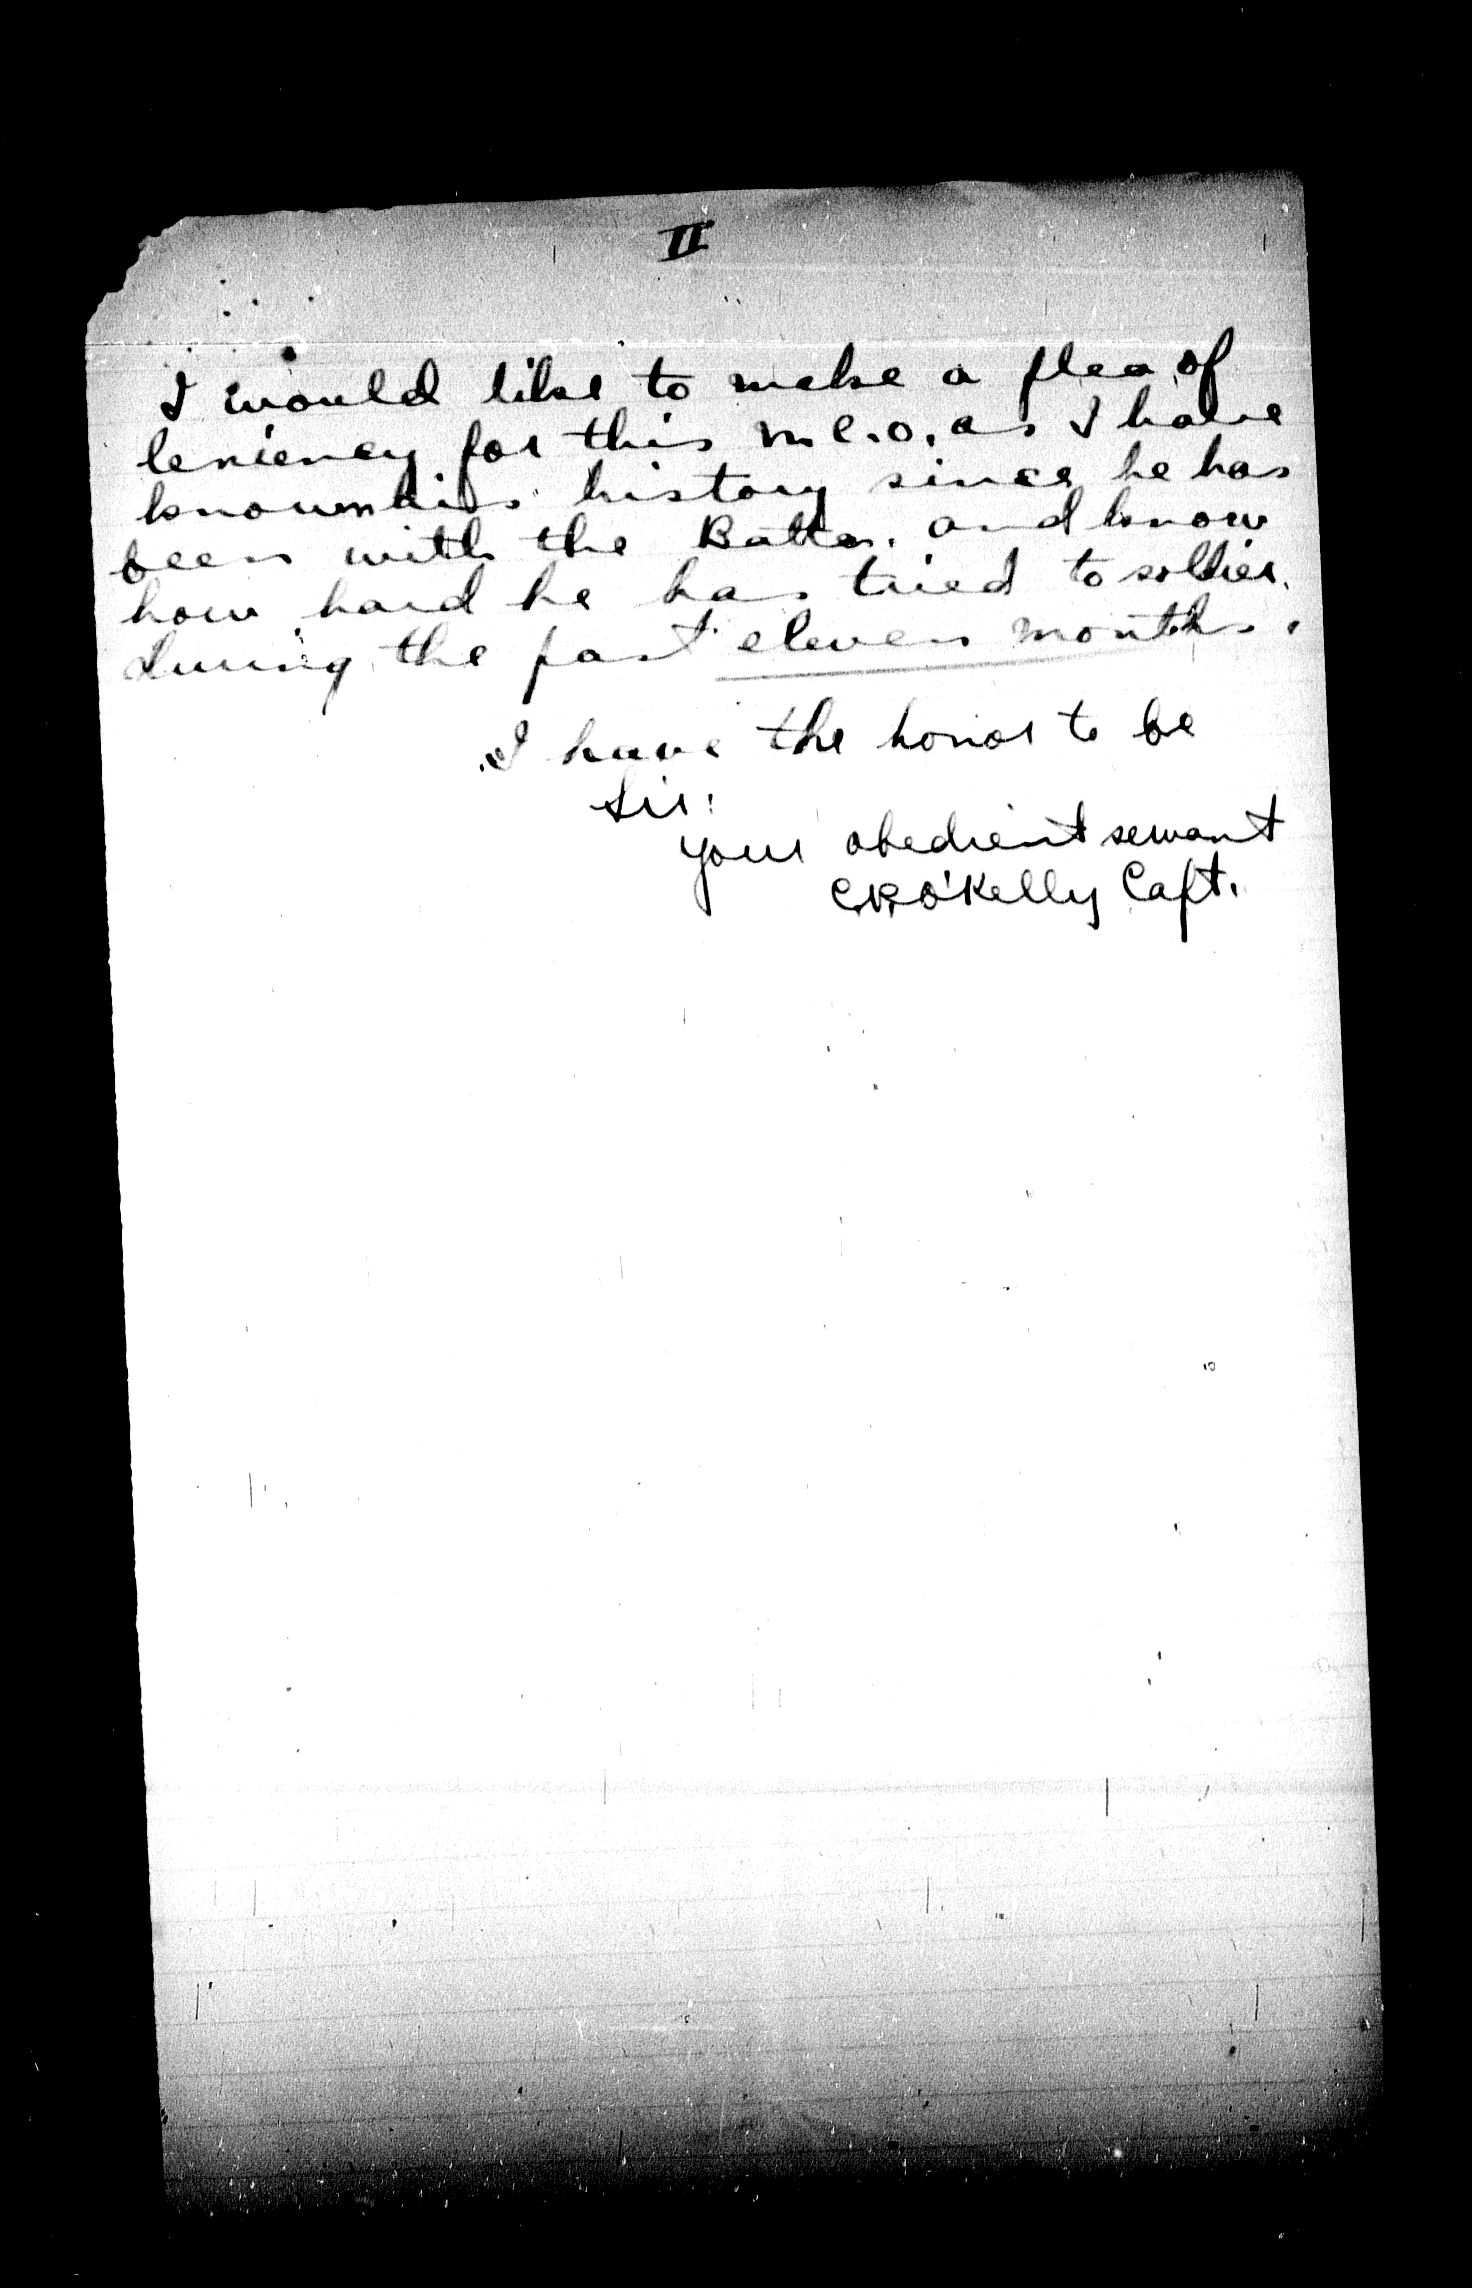 II
I would like to make a plea of
leniency for this N.C.O. as I have
known his history since he has
been with the Battn. and know
how hard he has tried to soldier
during the past eleven months.
I have the honor to be
Sir:
Your obedient servant
C.R. O'Kelly Capt.